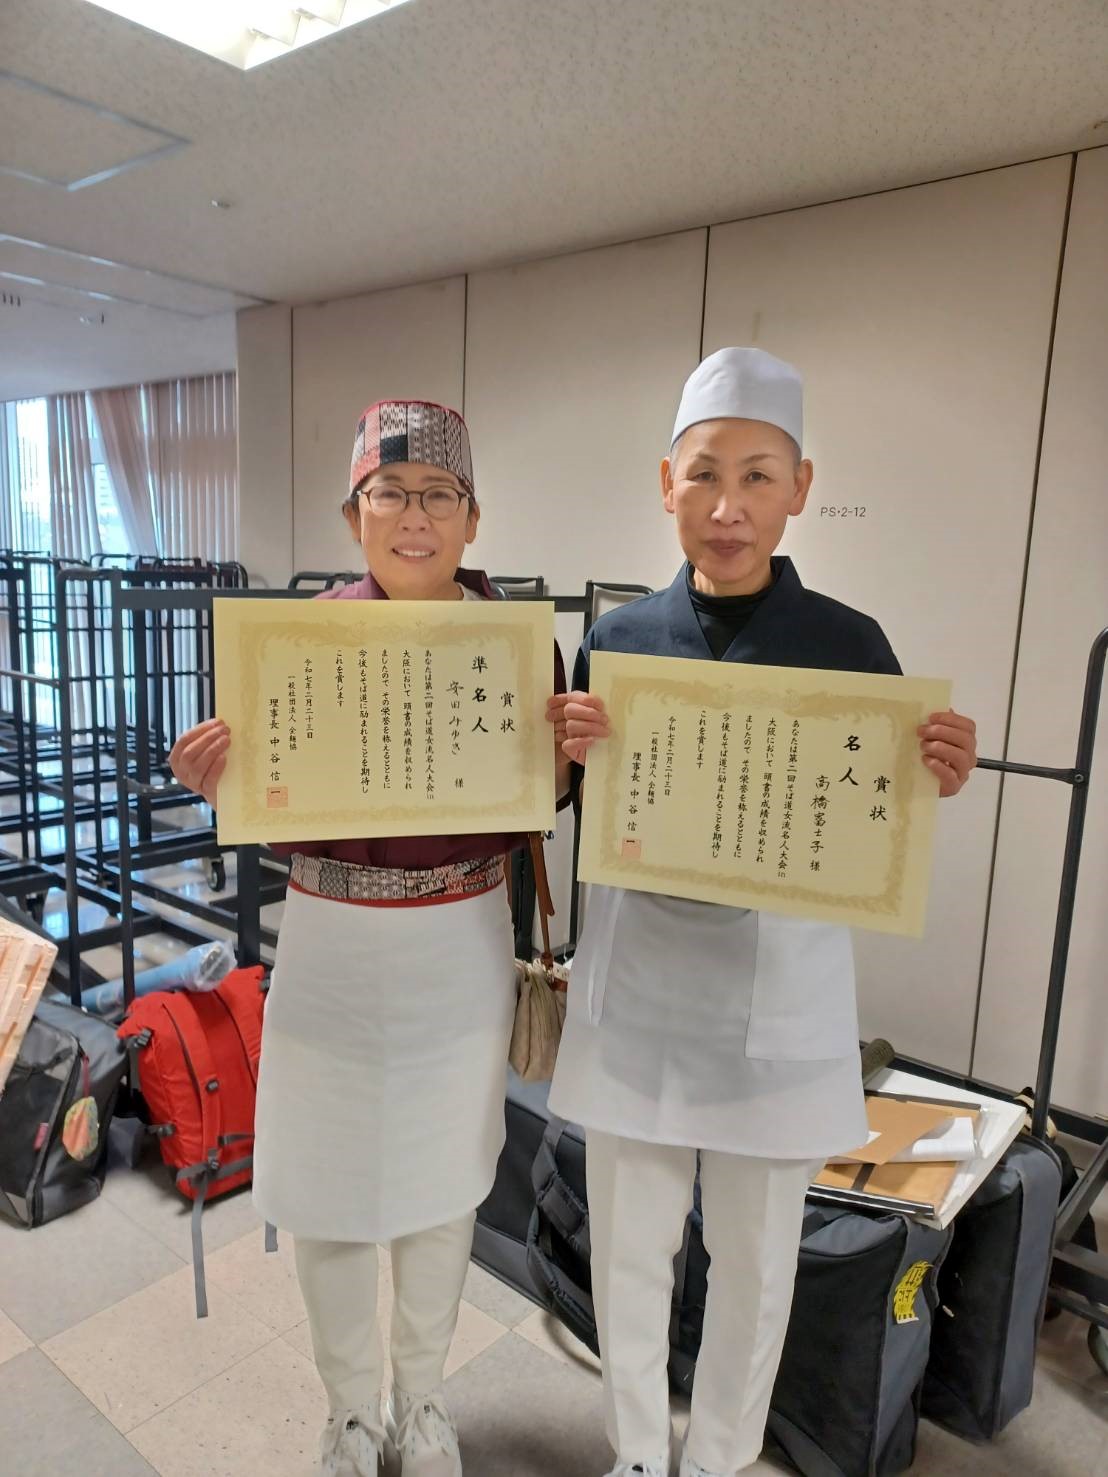 賞状
準名人
安田みゆき 様
あなたは第二回そば道女流名人大会in
大阪において 頭書の成績を収められ
ましたので その栄誉を称えるとともに
今後もそば道に励まれることを期待し
これを賞します
令和七年二月二十三日
一般社団法人 全麺協
理事長 中谷信一
賞状
名人
高橋富士子 様
あなたは第二回そば道女流名人大会in
大阪において 頭書の成績を収められ
ましたので その栄誉を称えるとともに
今後もそば道に励まれることを期待し
これを賞します
令和七年二月二十三日
一般社団法人 全麺協
理事長 中谷信一
PS・2-12